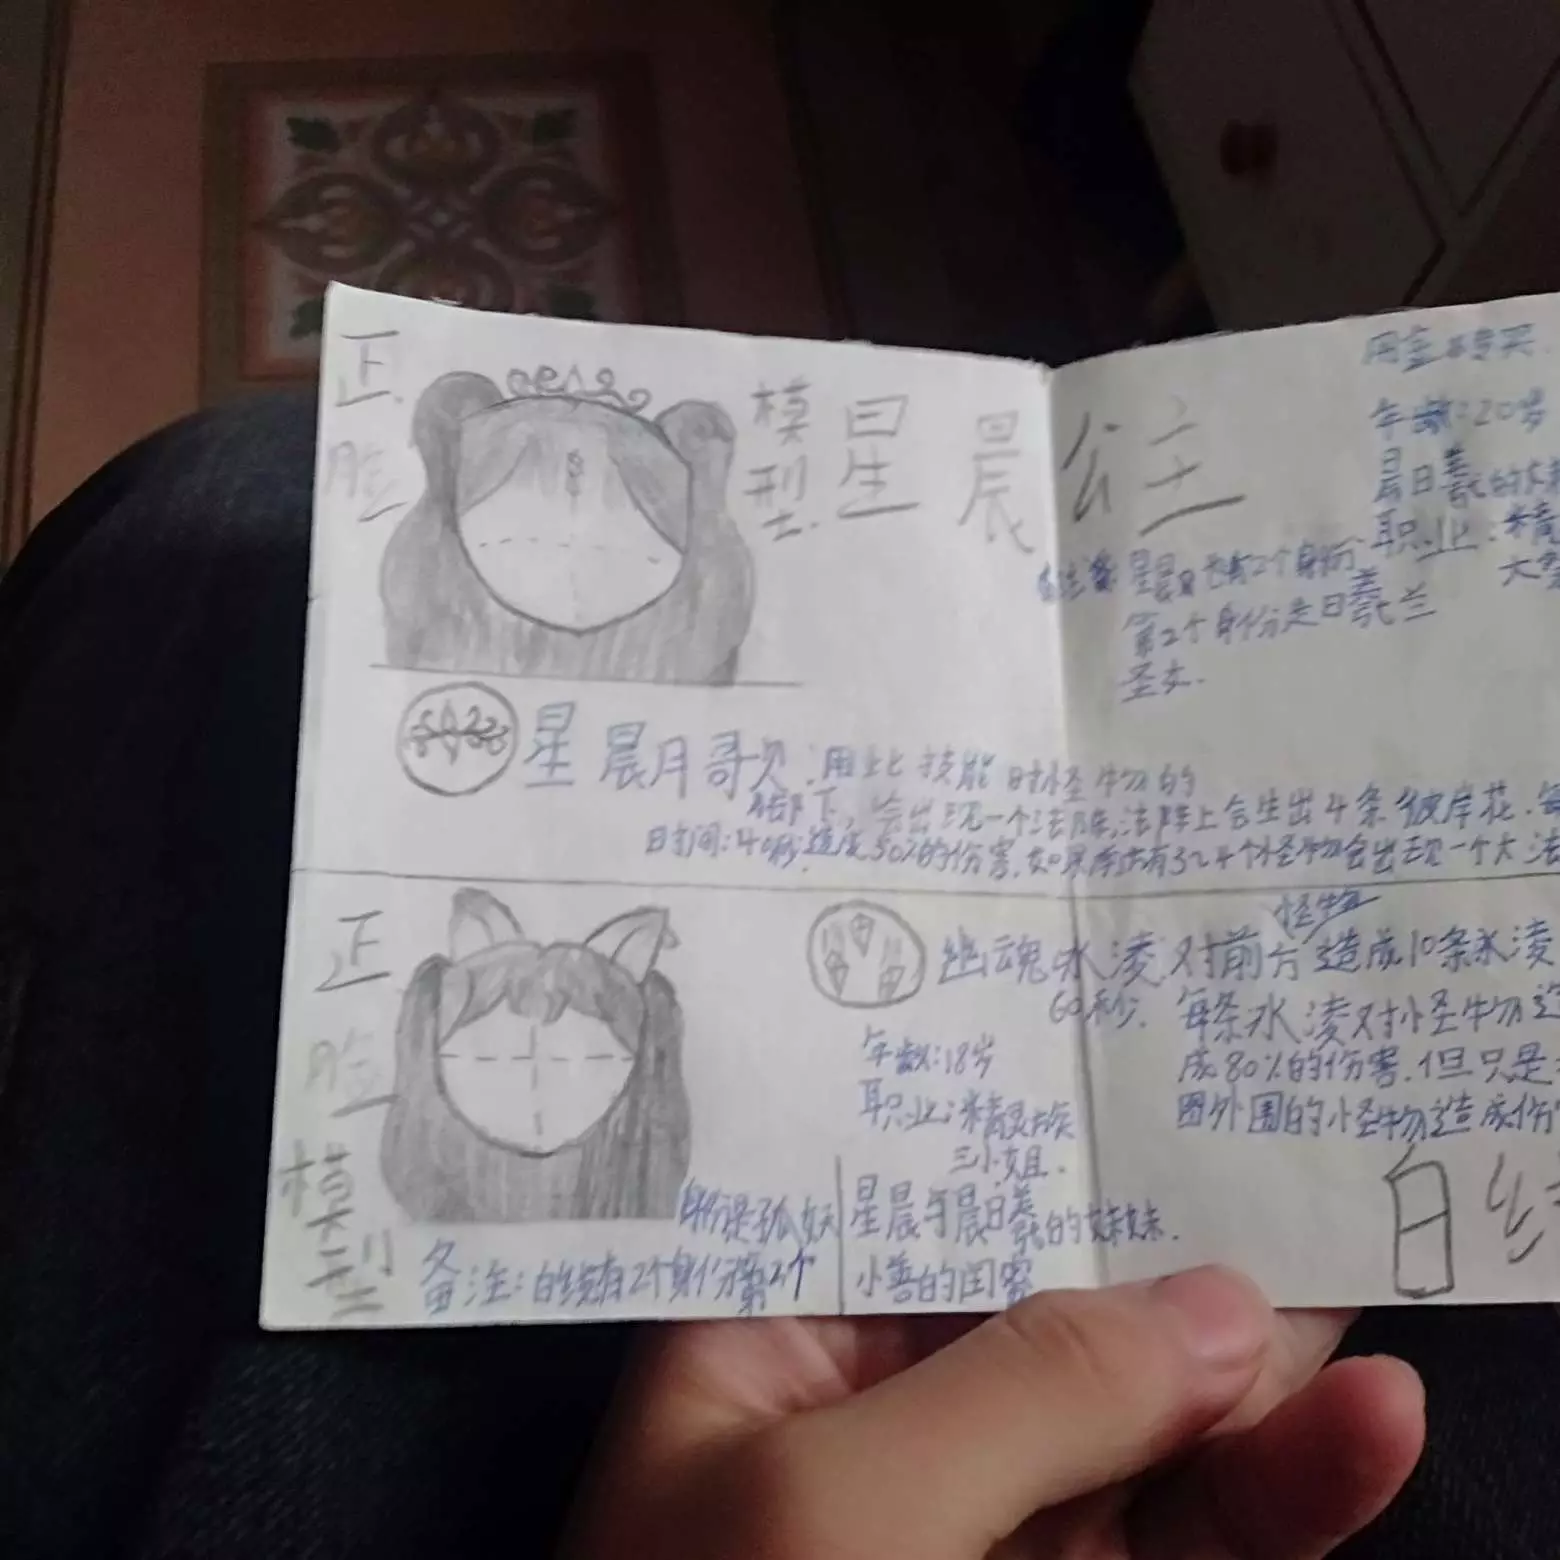 正脸
模型
星晨公主
年龄:20岁
职业:精
备注:星晨也有2个身份
第2个身份是日羲兰
圣女.
星晨月哥贝:用此技能时怪物的
脚下,会出现一个法阵,法阵上会生出4条彼岸花.每
时间:40秒造成50%的伤害.如果身边有3~4个怪物会出现一个大法
正脸模型
幽魂水凌对前方怪物造成10条水凌
60秒. 每条水凌对怪物造
成80%的伤害.但只是
围外围的怪物造成伤
年龄:18岁
职业:精灵族
三小姐.
星晨与晨日羲的妹妹.
小善的闺密
白
备注:白线有2个身份第2个
身份是孤妖